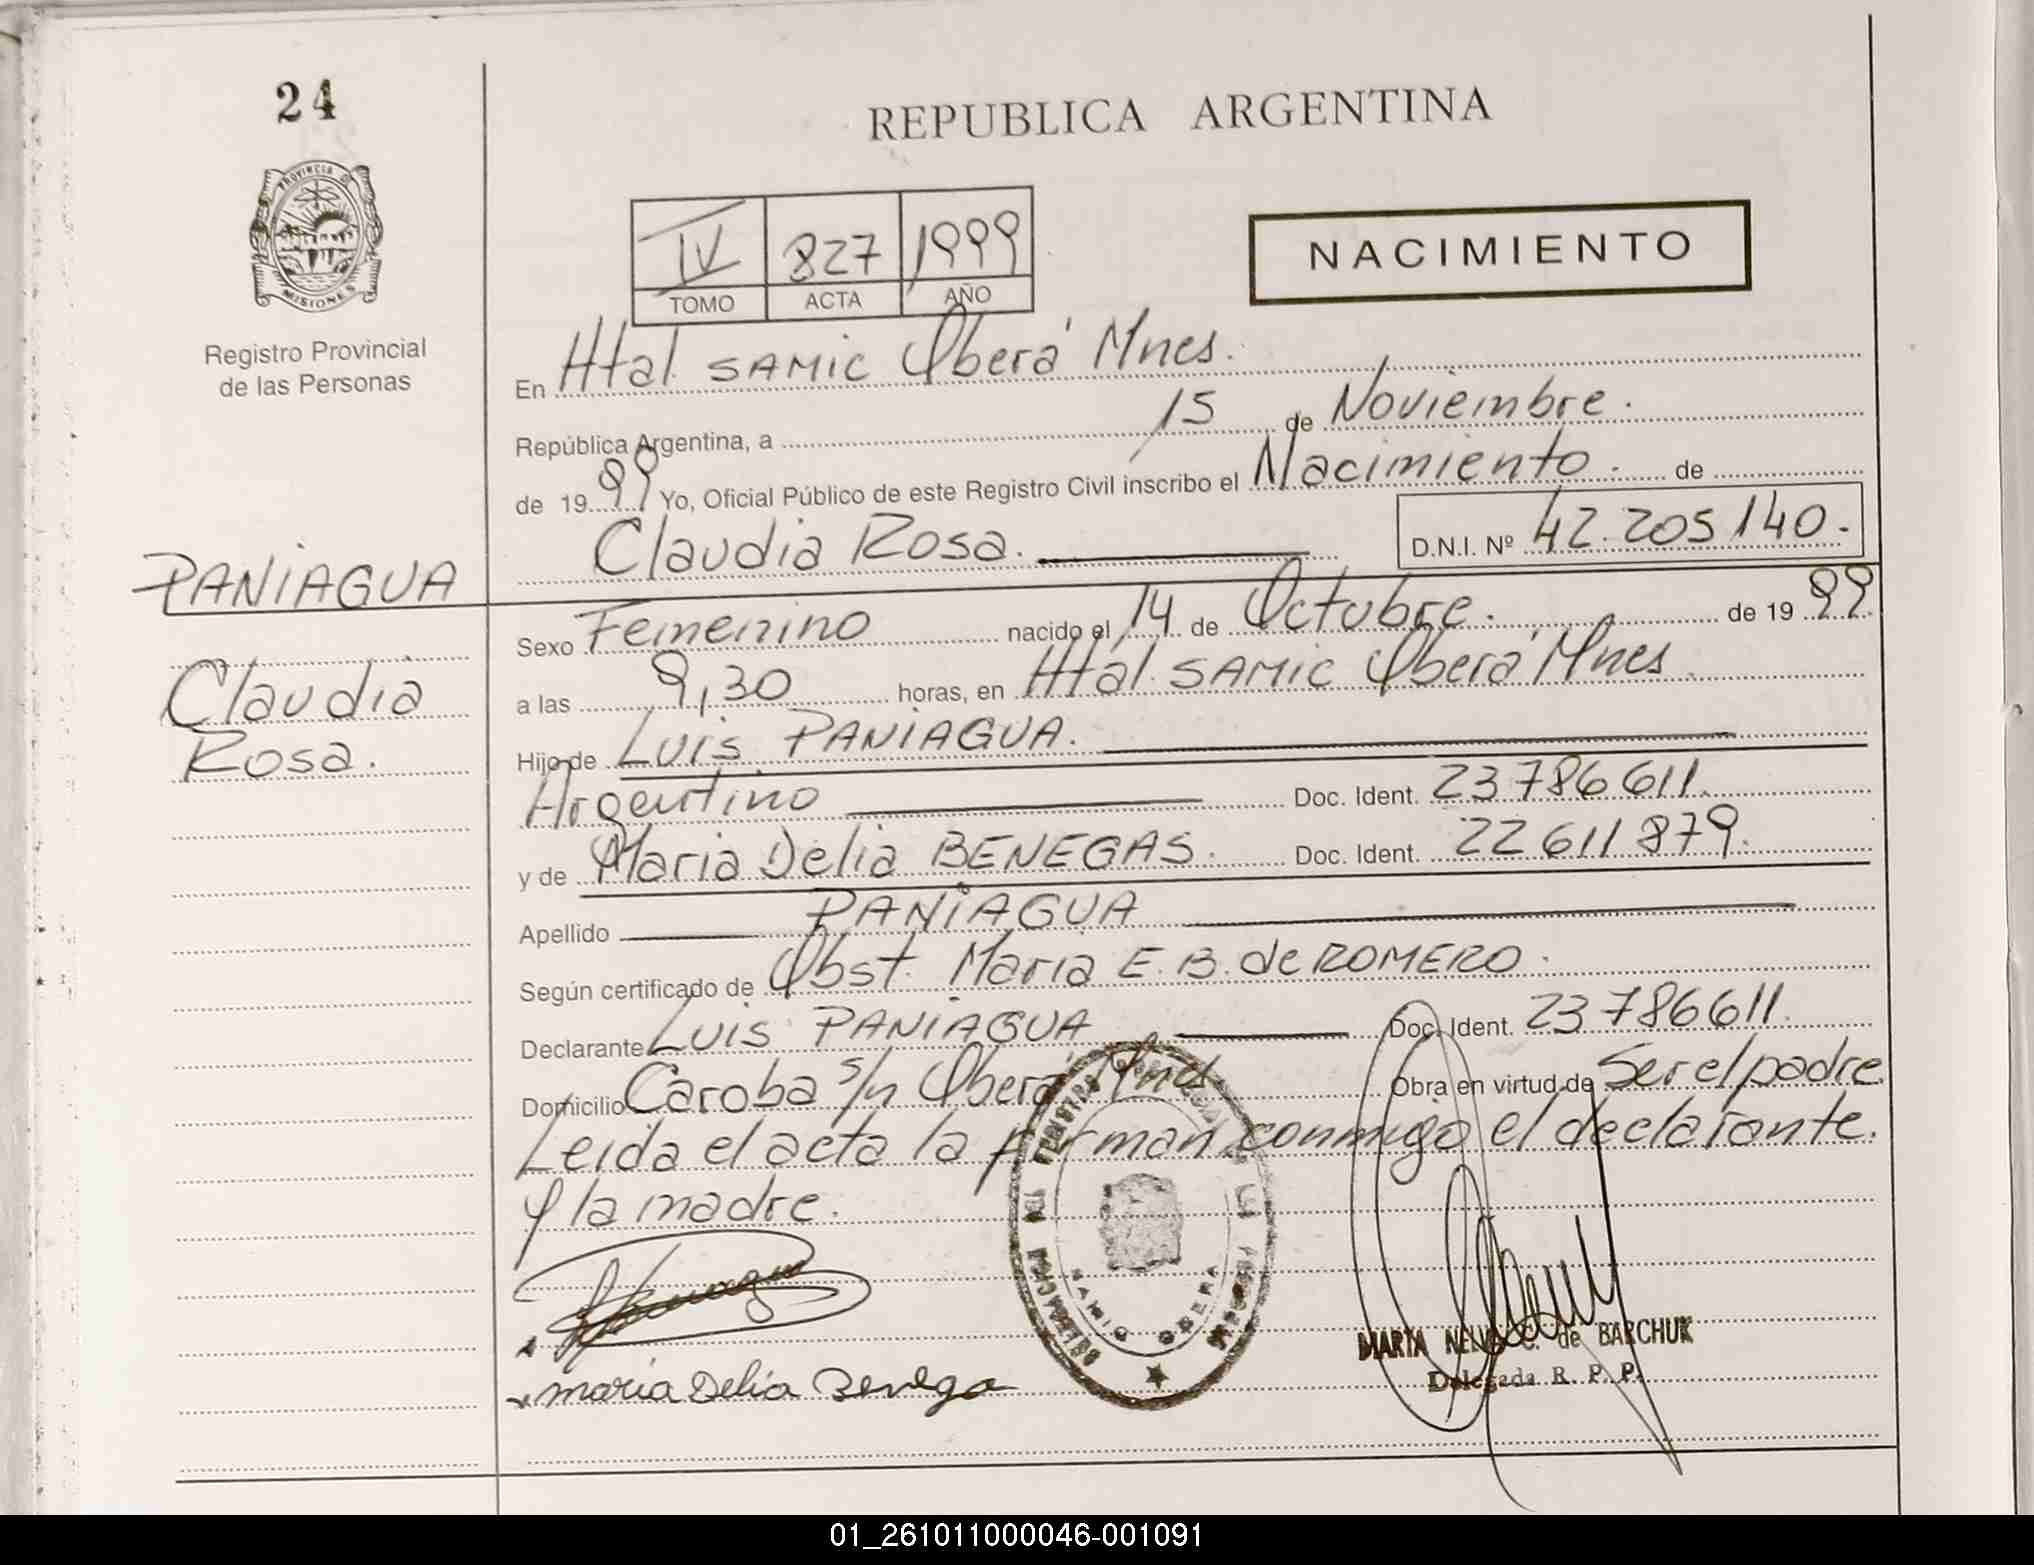 24
REPUBLICA ARGENTINA
PROVINCIA DE
MISIONES
Registro Provincial
de las Personas
IV 827 1999
TOMO ACTA AÑO
NACIMIENTO
En Htal SAMIC Oberá Mnes.
República Argentina, a 15 de Noviembre.
de 1999 Yo, Oficial Público de este Registro Civil inscribo el Nacimiento. de
Claudia Rosa. D.N.I. Nº 42.205140.
PANIAGUA
Claudia
Rosa.
Sexo Femenino nacido el 14 de Octubre. de 1999.
a las 9,30 horas, en Htal. SAMIC Oberá Mnes.
Hijo de Luis PANIAGUA.
Argentino Doc. Ident. 23786611.
y de Maria Delia BENEGAS. Doc. Ident. 22611879.
Apellido PANIAGUA
Según certificado de Obst. Maria E. B. de ROMERO.
Declarante Luis PANIAGUA Doc. Ident. 23786611.
Domicilio Caroba s/n Oberá Mnes Obra en virtud de Ser el padre.
Leida el acta la firman conmigo el declarante.
y la madre.
OBERA
maria Delia Benega
MARIA C. de BARCHUK
Delegada R. P. P.
01_261011000046-001091